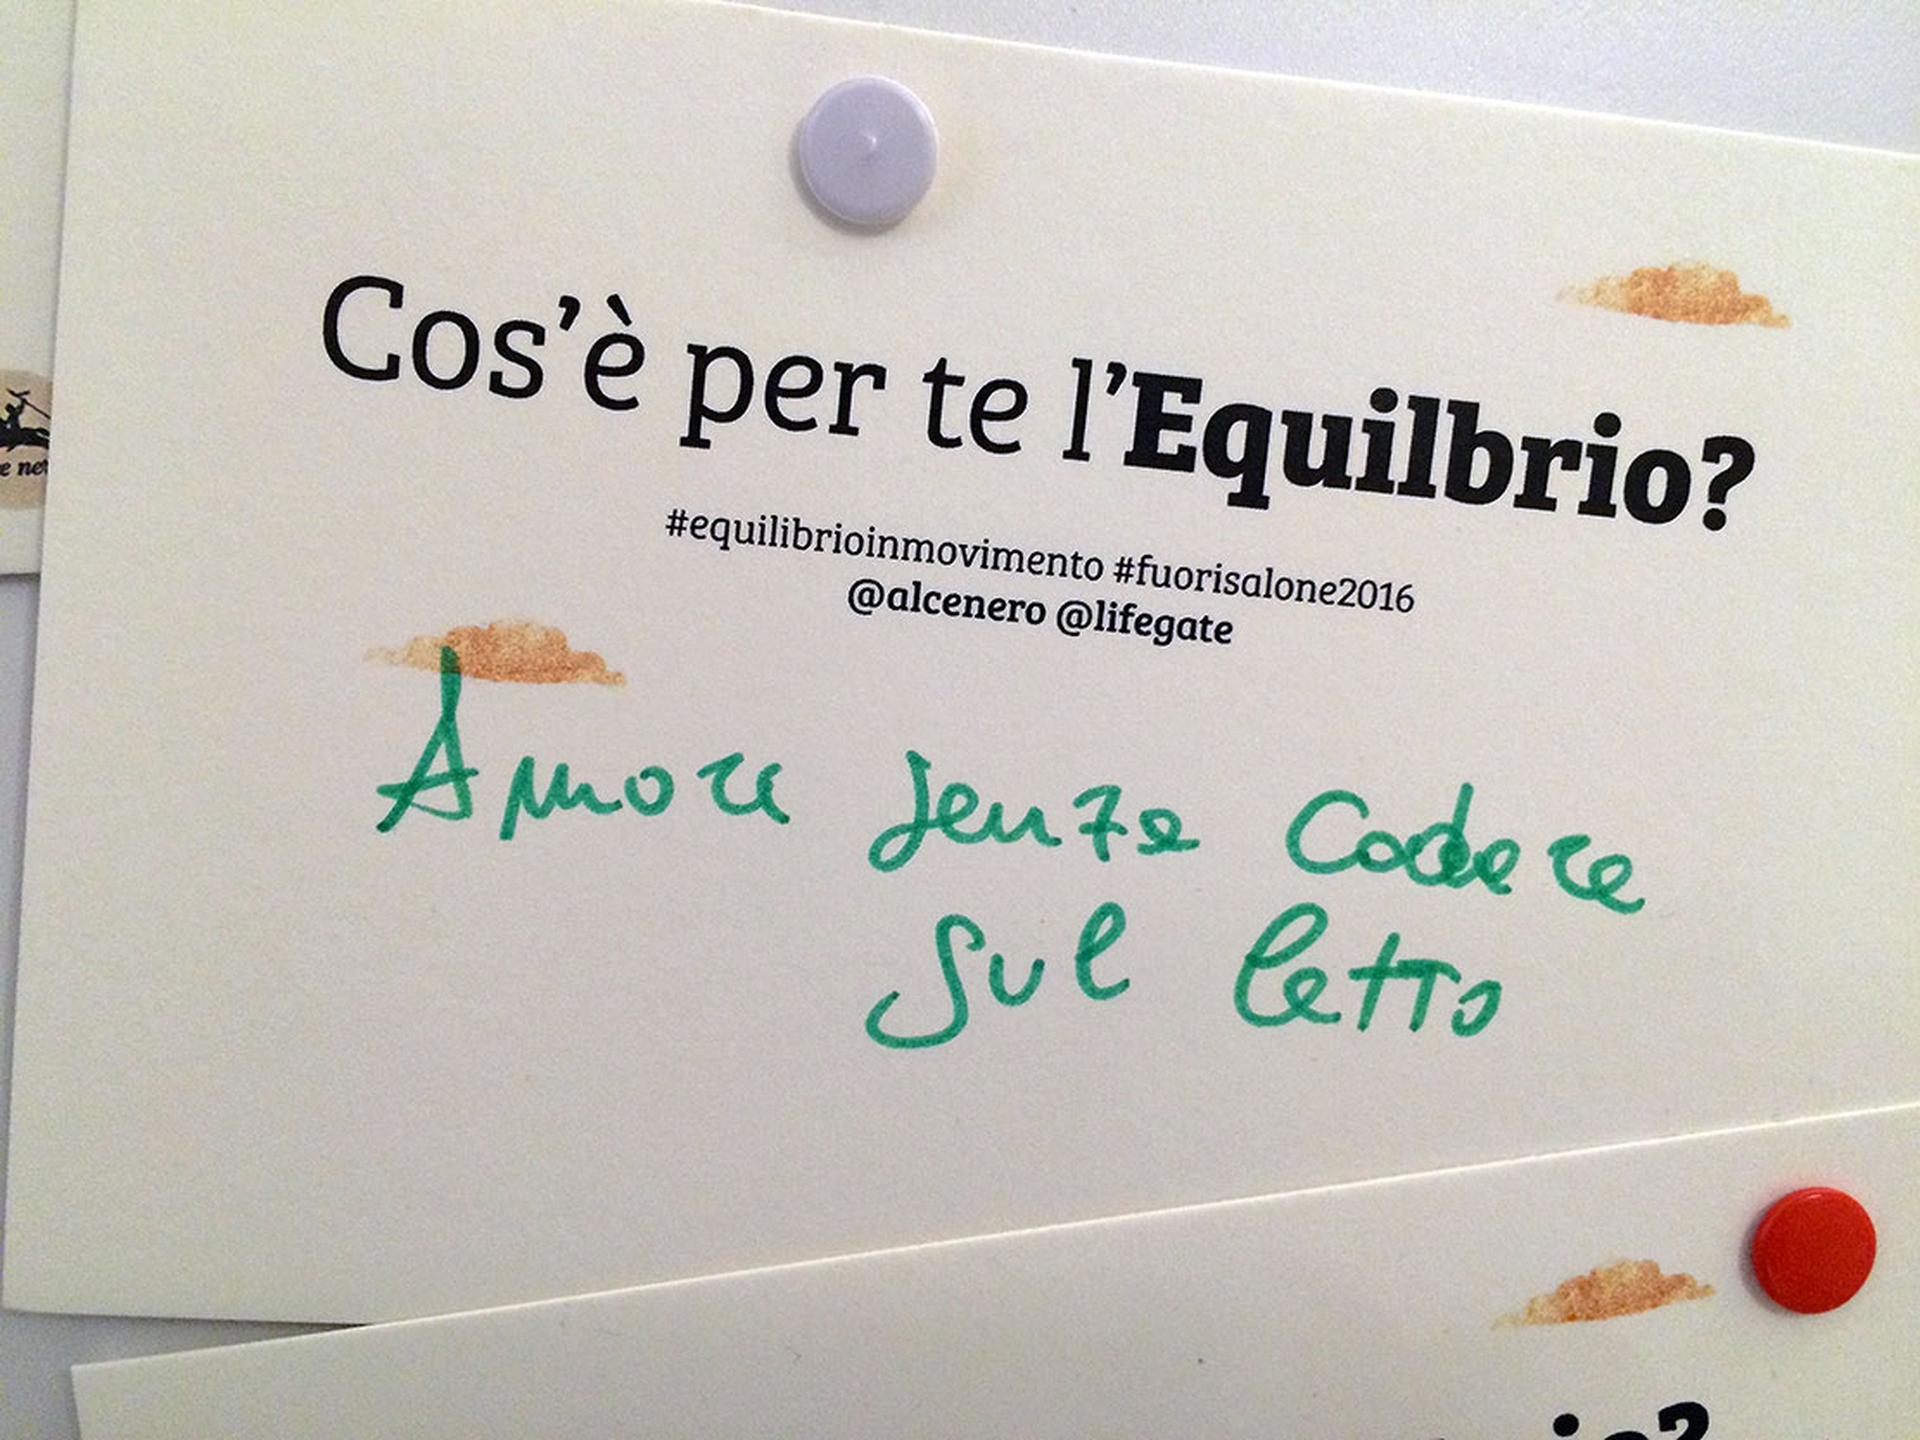 Cos'è per te l'Equilbrio?
#equilibrioinmovimento #fuorisalone2016
@alcenero @lifegate
Amore senza cadere
sul letto
e ner
io?